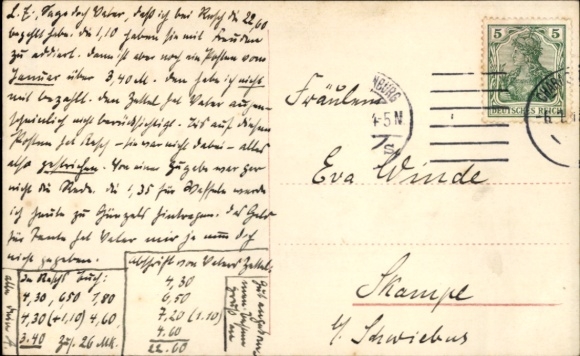 L. E. Sage doch Vater, daß ich bei Rasch die 22,60
bezahlt habe. die 1,10 haben sie mit Freuden
zu addiert. dann ist aber noch ein Posten vom
Januar über 3,40 M. den habe ich nicht
mit bezahlt. den Zettel hat Vater augen-
scheinlich nicht berücksichtigt. Bis auf diesen
Posten hat Rasch – sie war nicht dabei – alles
also gestrichen. Von einer Zugabe war gar
nicht die Rede. die 1,35 für werde
ich heute zu hintragen. das Geld
für Tante hat Vater mir ja nun doch
nicht gegeben.
In Raschs Buch:
4,30, 6,50 1,80
4,30 (+1,10) 4,60,
3.40 Zus. 26 Mk.
Abschrift von Vaters Zettel:
4,30
6,50
7,20 (1.10)
4.60
22.60
Fräulein
Eva Winde
Skampe
b/ Schwiebus
5 5
DEUTSCHES REICH
4-5 N